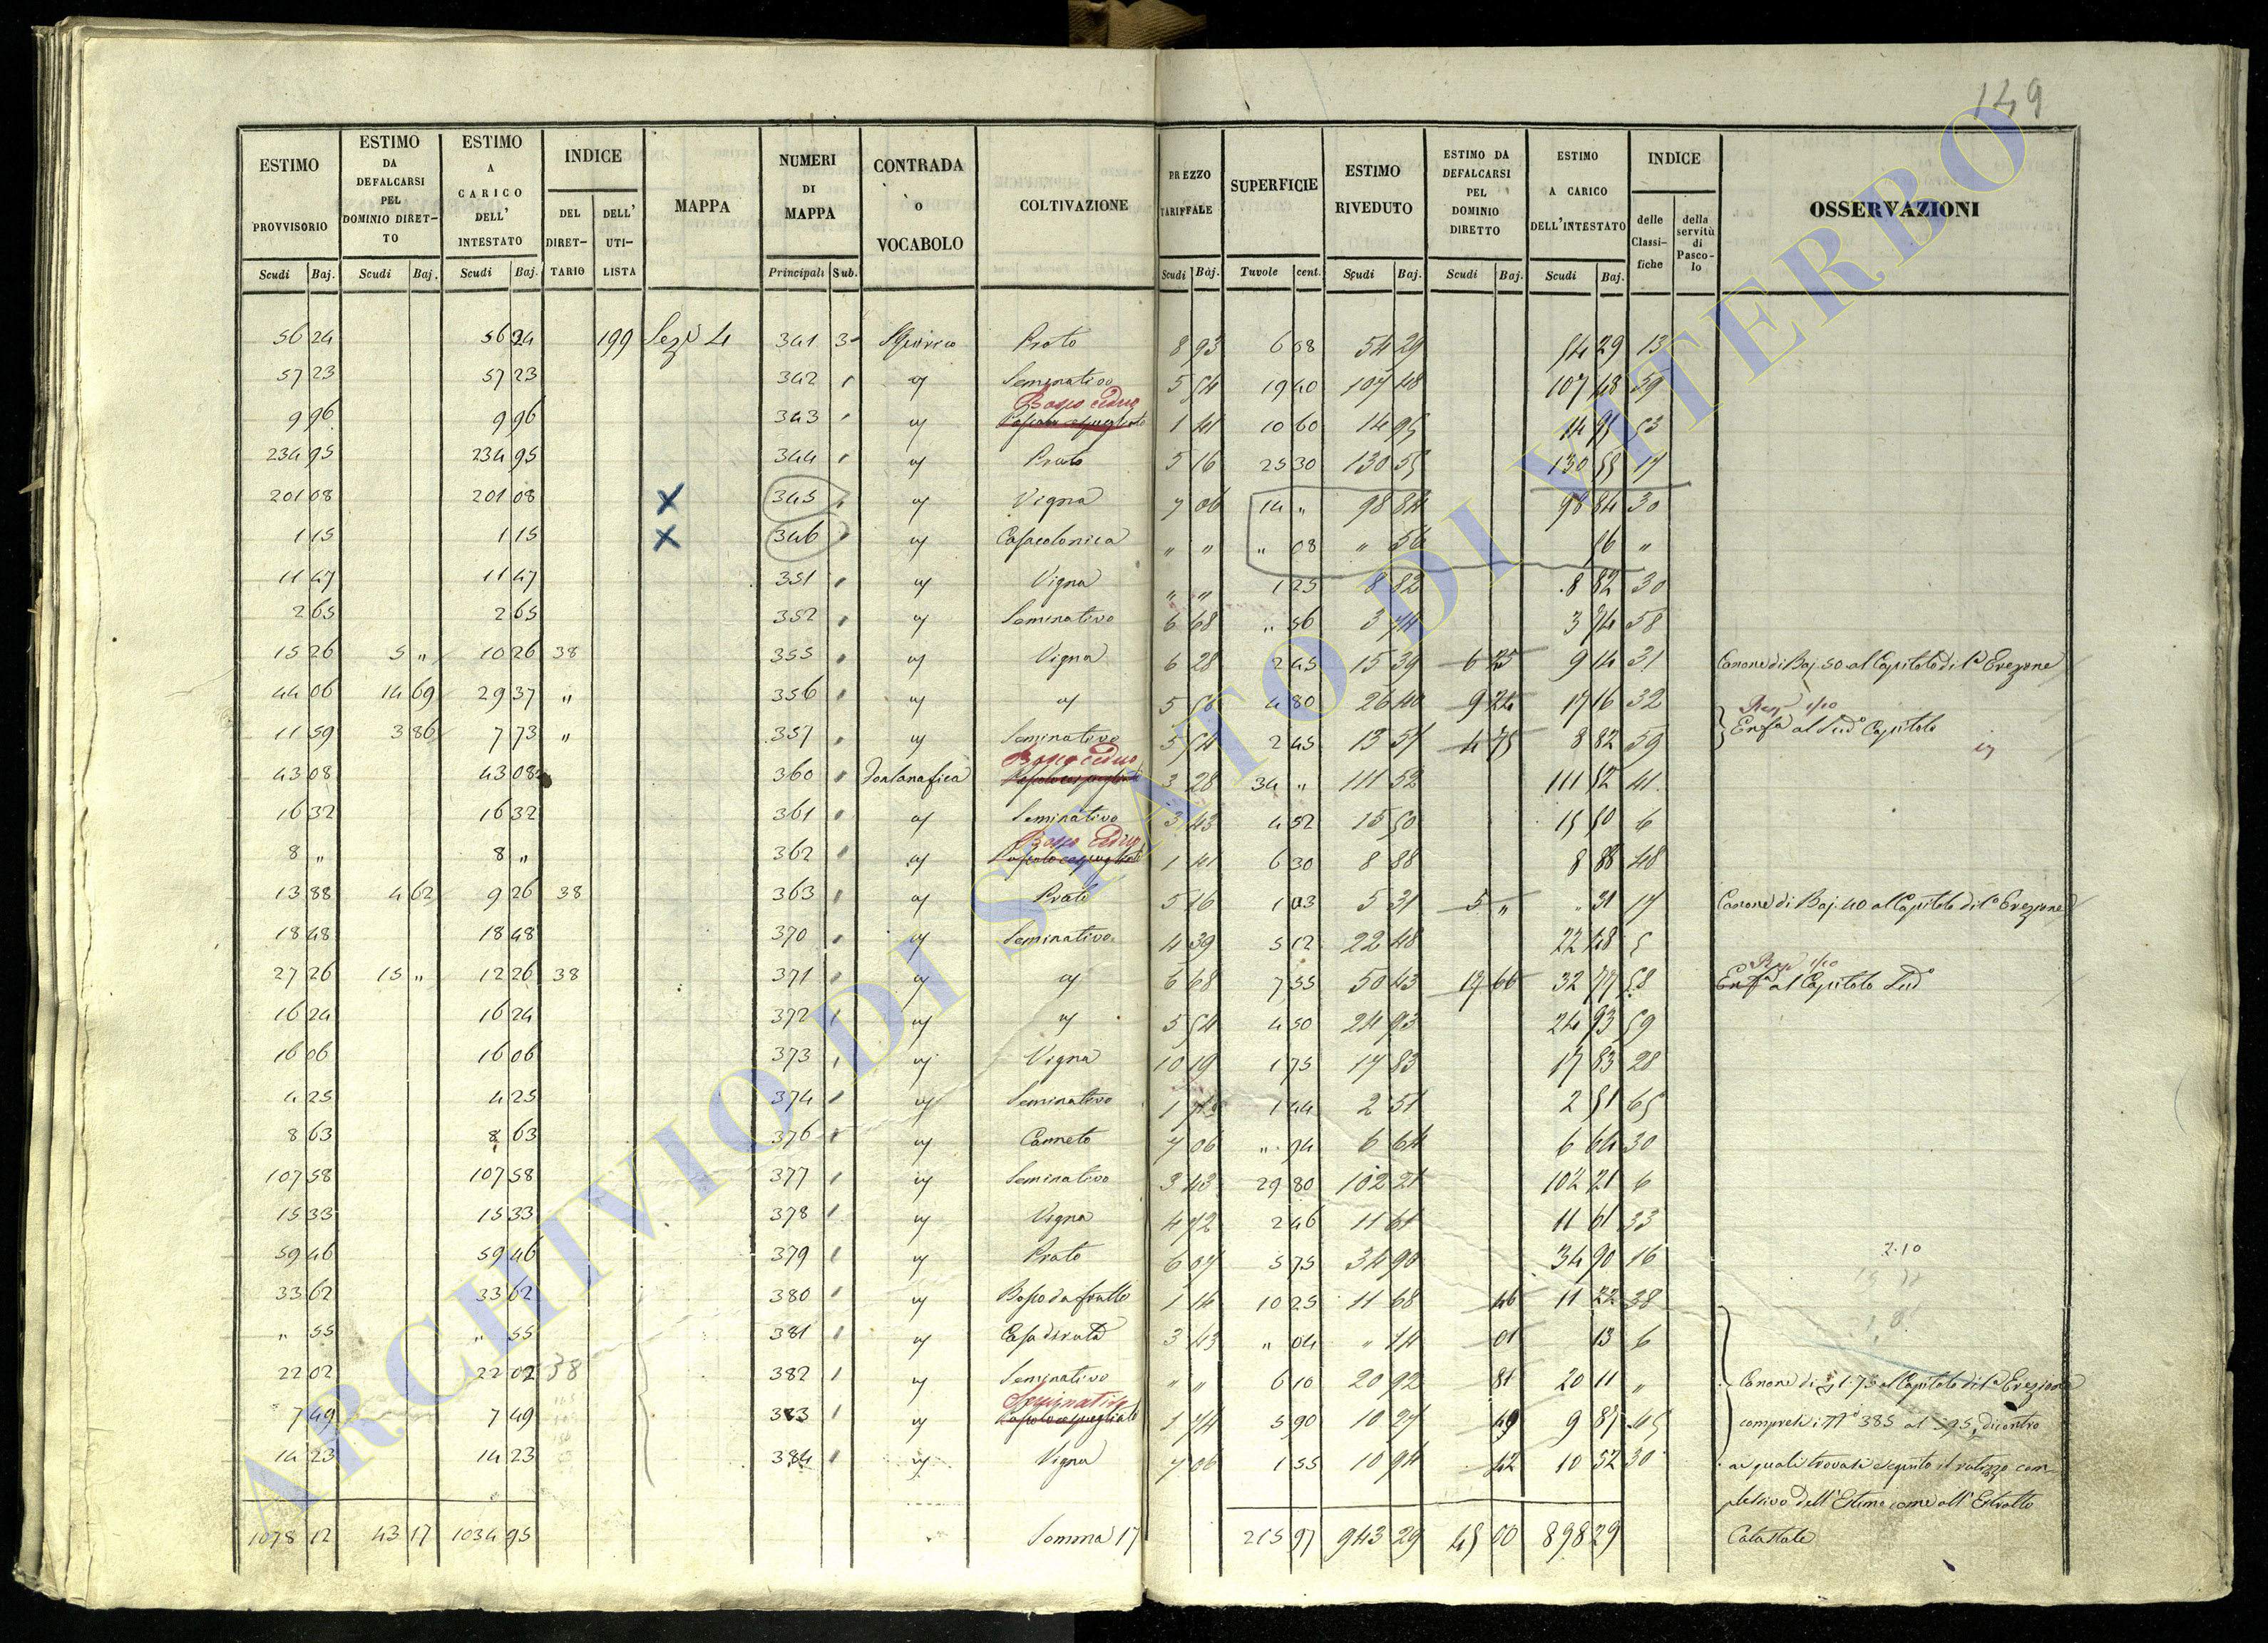 149
ESTIMO PROVVISORIO | ESTIMO DA DEFALCARSI PEL DOMINIO DIRET-TO | ESTIMO A CARICO DELL' INTESTATO | INDICE | MAPPA | NUMERI DI MAPPA | CONTRADA o VOCABOLO | COLTIVAZIONE | PREZZO TARIFFALE | SUPERFICIE | ESTIMO RIVEDUTO | ESTIMO DA DEFALCARSI PEL DOMINIO DIRETTO | ESTIMO A CARICO DELL'INTESTATO | INDICE | OSSERVAZIONI
DEL DIRET-TARIO | DELL' UTI-LISTA | delle Classi-fiche | della servitù di Pasco-lo
Scudi Baj. | Scudi Baj. | Scudi Baj. | Principali Sub. | Scudi Baj. | Tavole cent. | Scudi Baj. | Scudi Baj. | Scudi Baj.
56 24 | 56 24 | 199 | Sez. 4 | 341 3 | Prato | 8 93 | 6 08 | 54 29 | 54 29 | 13
57 23 | 57 23 | 342 | Seminativo | 5 54 | 19 40 | 107 48 | 107 48 | 59
9 96 | 9 96 | 343 | Bosco ceduo | 1 41 | 10 60 | 14 95 | 14 95 | 53
234 95 | 234 95 | 344 | Prato | 5 16 | 25 30 | 130 55 | 130 55 | 17
201 08 | 201 08 | X | 345 | Vigna | 7 06 | 14 " | 98 84 | 98 84 | 30
1 15 | 1 15 | X | 346 | Casa colonica | " " | " 08 | " 56 | 56 | "
11 47 | 11 47 | 351 | Vigna | " " | 1 25 | 8 82 | 8 82 | 30
2 65 | 2 65 | 352 | Seminativo | 6 68 | " 56 | 3 74 | 3 74 | 58
15 26 | 5 " | 10 26 | 38 | 355 | Vigna | 6 28 | 2 45 | 15 39 | 6 25 | 9 14 | 31 | Canone di Baj. 50 al Capitolo di
44 06 | 14 69 | 29 37 | " | 356 | 5 50 | 4 80 | 26 40 | 9 24 | 17 16 | 32
11 59 | 3 86 | 7 73 | " | 357 | Seminativo | 5 54 | 2 45 | 13 57 | 4 75 | 8 82 | 59 | Capitolo
43 08 | 43 08 | 360 | Fontanafica | Bosco ceduo | 3 28 | 34 " | 111 52 | 111 52 | 41
16 32 | 16 32 | 361 | Seminativo | 3 43 | 4 52 | 15 50 | 15 50 | 6
8 " | 8 " | 362 | Bosco ceduo | 1 41 | 6 30 | 8 88 | 8 88 | 48
13 88 | 4 62 | 9 26 | 38 | 363 | Prato | 5 16 | 1 03 | 5 31 | 5 " | " 31 | 17 | Canone di Baj. 40 al Capitolo di
18 48 | 18 48 | 370 | Seminativo | 4 39 | 5 12 | 22 48 | 22 48 | 5
27 26 | 15 " | 12 26 | 38 | 371 | 6 68 | 7 55 | 50 43 | 17 66 | 32 77 | 58 | al Capitolo
16 24 | 16 24 | 372 | 5 54 | 4 50 | 24 93 | 24 93 | 59
16 06 | 16 06 | 373 | Vigna | 10 19 | 1 75 | 17 83 | 17 83 | 28
4 25 | 4 25 | 374 | Seminativo | 1 | 1 44 | 2 51 | 2 51 | 65
8 63 | 8 63 | 376 | Canneto | 7 06 | " 94 | 6 64 | 6 64 | 30
107 58 | 107 58 | 377 | Seminativo | 3 43 | 29 80 | 102 21 | 102 21 | 6
15 33 | 15 33 | 378 | Vigna | 4 72 | 2 46 | 11 61 | 11 61 | 33
59 46 | 59 46 | 379 | Prato | 6 07 | 5 75 | 34 90 | 34 90 | 16 | 2.10
33 62 | 33 62 | 380 | Bosco da frutto | 1 14 | 10 25 | 11 68 | 46 | 11 22 | 38
" 55 | " 55 | 381 | Casa diruta | 3 43 | " 04 | " 14 | 01 | 13 | 6
22 02 | 22 02 | 38 | 382 | Seminativo | " " | 6 10 | 20 92 | 81 | 20 11 | " | Canone di 1.75 al Capitolo di
7 49 | 7 49 | 383 | Seminativo | 1 74 | 5 90 | 10 27 | 40 | 9 87 | 45 | compresi i 385 al 395 dicontro
14 23 | 14 23 | 384 | Vigna | 7 06 | 1 55 | 10 94 | 42 | 10 52 | 30 | ai quali trovasi eseguito il com-
plessivo dell'Estimo come all'Estratto
1078 12 | 43 17 | 1034 95 | Somma 17 | 215 97 | 943 29 | 45 00 | 898 29 | Catastale
ARCHIVIO DI STATO DI VITERBO